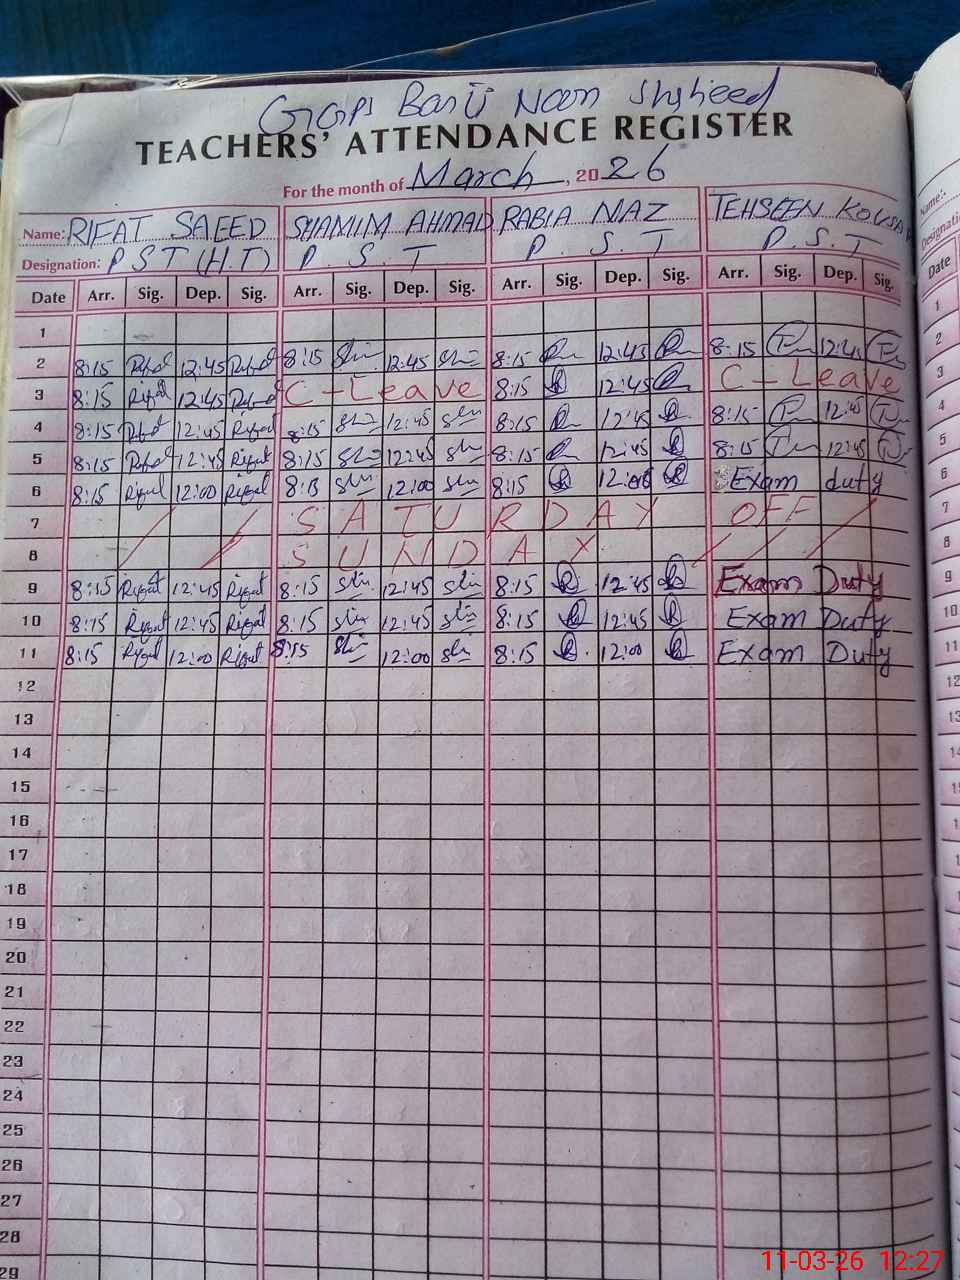 GGPS Basti Noon Shaheed
TEACHERS' ATTENDANCE REGISTER
For the month of March, 2026
Name: RIFAT SAEED SHAMIM AHMAD RABIA NAZ TEHSEEN KOUSAR
Designation: P S T (H.T) P S. T P. S. T P. S. T
Date Arr. Sig. Dep. Sig. Arr. Sig. Dep. Sig. Arr. Sig. Dep. Sig. Arr. Sig. Dep. Sig.
1
2 8:15 Rifat 12:45 Rifat 8:15 12:45 8:15 12:45 8:15 12:45
3 8:15 Rifat 12:45 Rifat C - Leave 8:15 12:45 C - Leave
4 8:15 Rifat 12:45 Rifat 8:15 12:45 8:15 12:45 8:15 12:45
5 8:15 Rifat 12:45 Rifat 8:15 12:45 8:15 12:45 8:15 12:45
6 8:15 Rifat 12:00 Rifat 8:15 12:00 8:15 12:00 Exam duty
7 SATURDAY OFF
8 SUNDAY
9 8:15 Rifat 12:45 Rifat 8:15 12:45 8:15 12:45 Exam Duty
10 8:15 Rifat 12:45 Rifat 8:15 12:45 8:15 12:45 Exam Duty
11 8:15 Rifat 12:00 Rifat 8:15 12:00 8:15 12:00 Exam Duty
12
13
14
15
16
17
18
19
20
21
22
23
24
25
26
27
28
29
Name:
Date
1
2
3
4
5
6
7
8
9
10
11
12
11-03-26 12:27